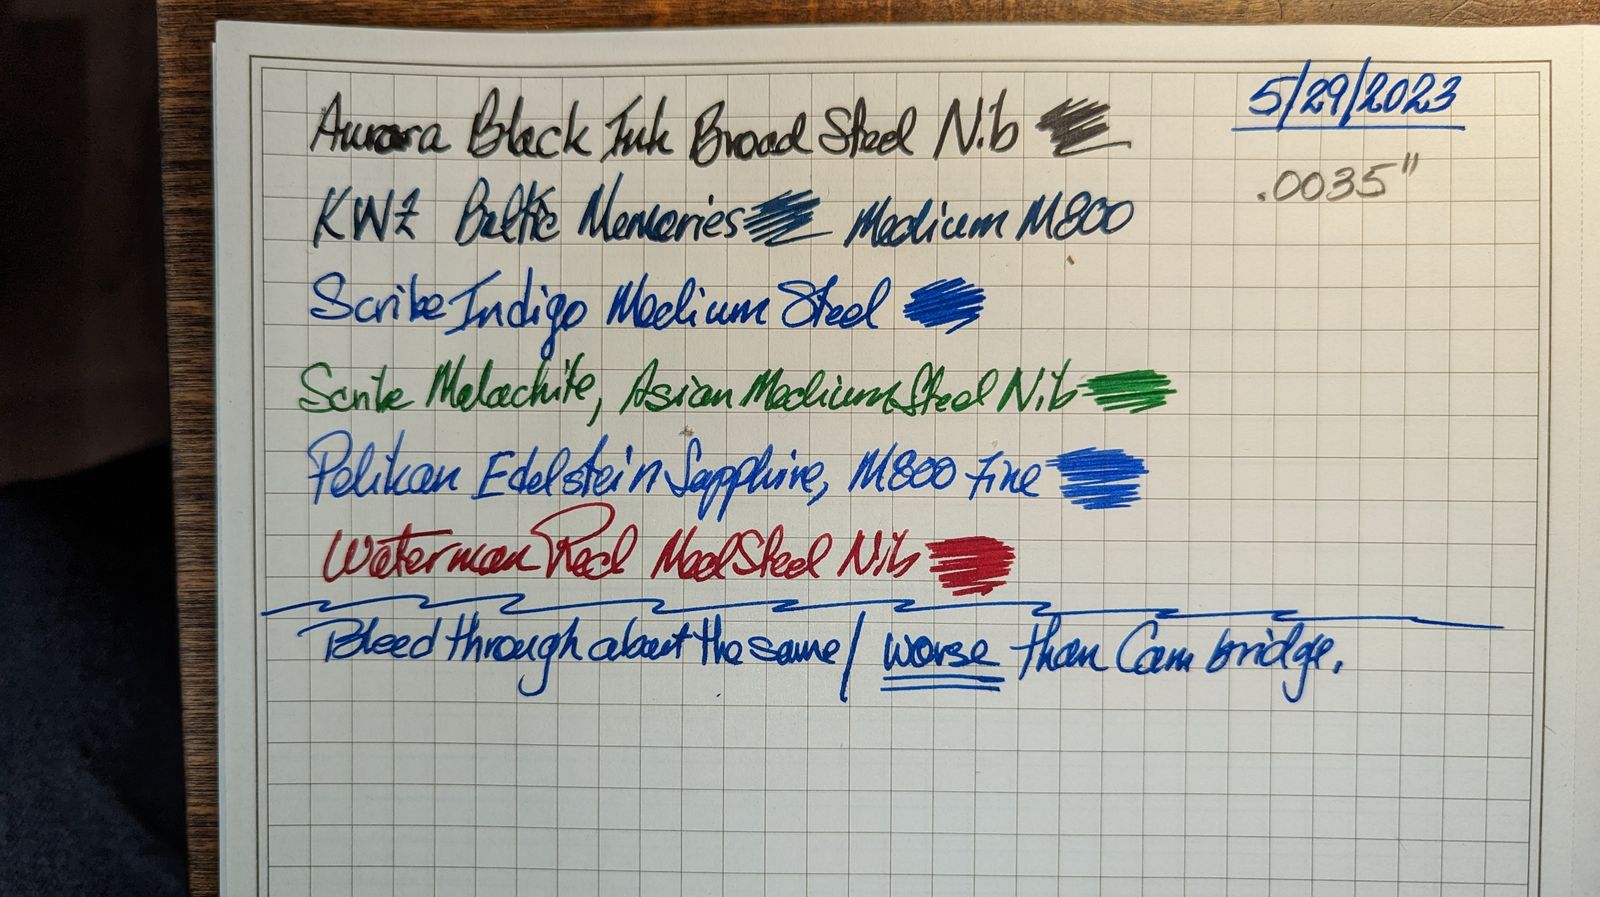 5/29/2023
.0035"
Aurora Black Ink Broad Steel Nib
KWZ Baltic Memories Medium M800
Scribe Indigo Medium Steel
Scribe Malachite, Asian Medium Steel Nib
Pelikan Edelstein Sapphire, M800 Fine
Waterman Red Med Steel Nib
Bleed through about the same/ worse than Cambridge.